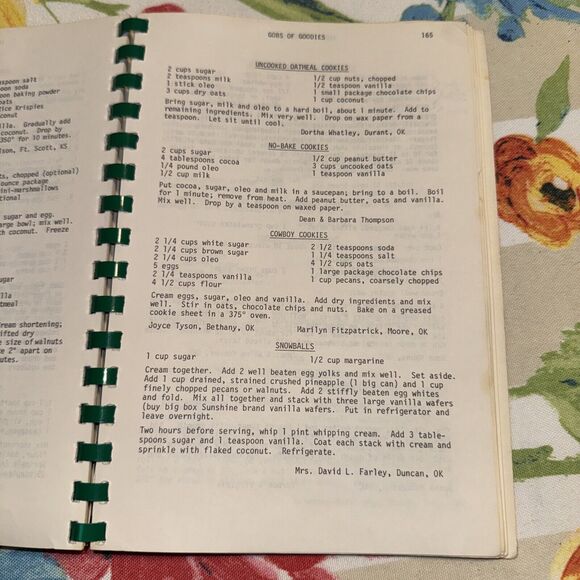 aspoon salt
spoon soda
oon baking powder
oats
ice Krispies
conut
illa. Gradually add
coconut. Drop by
350° for 10 minutes.
lson, Ft. Scott, KS
ts, chopped (optional)
ounce package
ini-marshmallows
tional
sugar and egg.
arge bowl; mix well.
h coconut. Freeze
gar
illa
tmeal
ream shortening;
ifted dry
e size of walnuts
e 2" apart on
nutes.
GOBS OF GOODIES 165
UNCOOKED OATMEAL COOKIES
2 cups sugar 1/2 cup nuts, chopped
2 teaspoons milk 1/2 teaspoon vanilla
1 stick oleo 1 small package chocolate chips
3 cups dry oats 1 cup coconut
Bring sugar, milk and oleo to a hard boil, about 1 minute. Add to
remaining ingredients. Mix very well. Drop on wax paper from a
teaspoon. Let sit until cool.
Dortha Whatley, Durant, OK
NO-BAKE COOKIES
2 cups sugar 1/2 cup peanut butter
4 tablespoons cocoa 3 cups uncooked oats
1/4 pound oleo 1 teaspoon vanilla
1/2 cup milk
Put cocoa, sugar, oleo and milk in a saucepan; bring to a boil. Boil
for 1 minute; remove from heat. Add peanut butter, oats and vanilla.
Mix well. Drop by a teaspoon on waxed paper.
Dean & Barbara Thompson
COWBOY COOKIES
2 1/4 cups white sugar 2 1/2 teaspoons soda
2 1/4 cups brown sugar 1 1/4 teaspoons salt
2 1/4 cups oleo 4 1/2 cups oats
5 eggs 1 large package chocolate chips
2 1/4 teaspoons vanilla 1 cup pecans, coarsely chopped
4 1/2 cups flour
Cream eggs, sugar, oleo and vanilla. Add dry ingredients and mix
well. Stir in oats, chocolate chips and nuts. Bake on a greased
cookie sheet in a 375° oven.
Joyce Tyson, Bethany, OK Marilyn Fitzpatrick, Moore, OK
SNOWBALLS
1 cup sugar 1/2 cup margarine
Cream together. Add 2 well beaten egg yolks and mix well. Set aside.
Add 1 cup drained, strained crushed pineapple (1 big can) and 1 cup
finely chopped pecans or walnuts. Add 2 stiffly beaten egg whites
and fold. Mix all together and stack with three large vanilla wafers
(buy big box Sunshine brand vanilla wafers. Put in refrigerator and
leave overnight.
Two hours before serving, whip 1 pint whipping cream. Add 3 table-
spoons sugar and 1 teaspoon vanilla. Coat each stack with cream and
sprinkle with flaked coconut. Refrigerate.
Mrs. David L. Farley, Duncan, OK